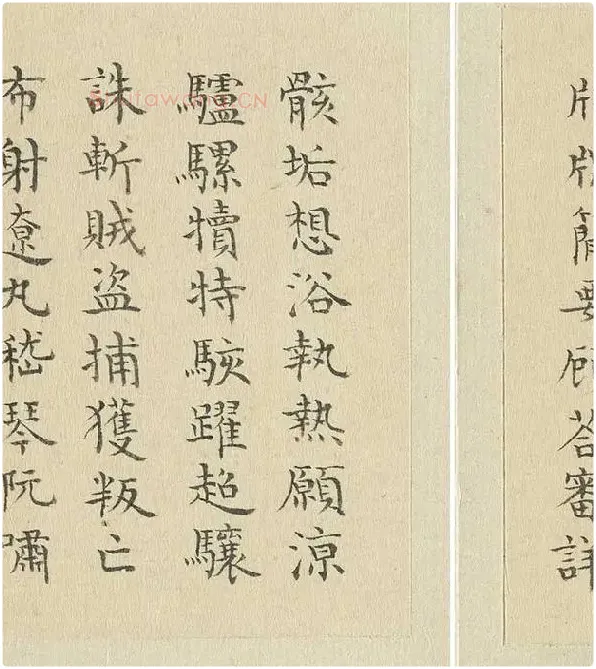 簡要顧荅審詳
骸垢想浴執熱願涼
驢騾犢特駭躍超驤
誅斬賊盜捕獲叛亡
布射遼丸嵇琴阮嘯